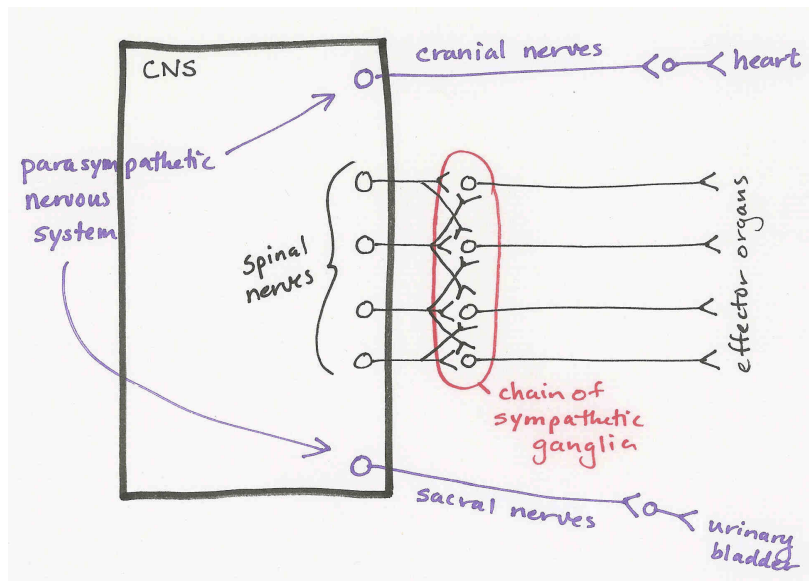 CNS
cranial nerves
heart
parasympathetic
nervous
system
spinal
nerves
effector organs
chain of
sympathetic
ganglia
sacral nerves
urinary
bladder